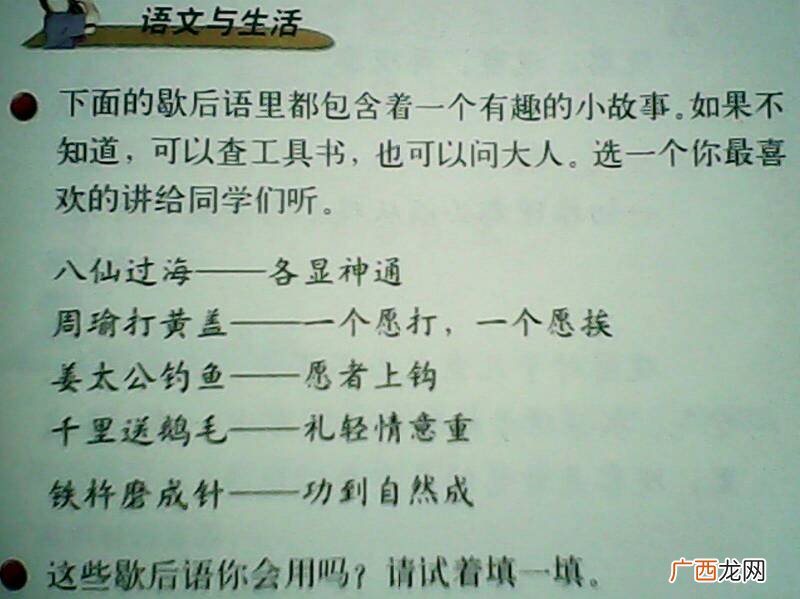 语文与生活
下面的歇后语里都包含着一个有趣的小故事。如果不
知道，可以查工具书，也可以问大人。选一个你最喜
欢的讲给同学们听。
八仙过海——各显神通
周瑜打黄盖——一个愿打，一个愿挨
姜太公钓鱼——愿者上钩
千里送鹅毛——礼轻情意重
铁杵磨成针——功到自然成
这些歇后语你会用吗？请试着填一填。
广西龙网